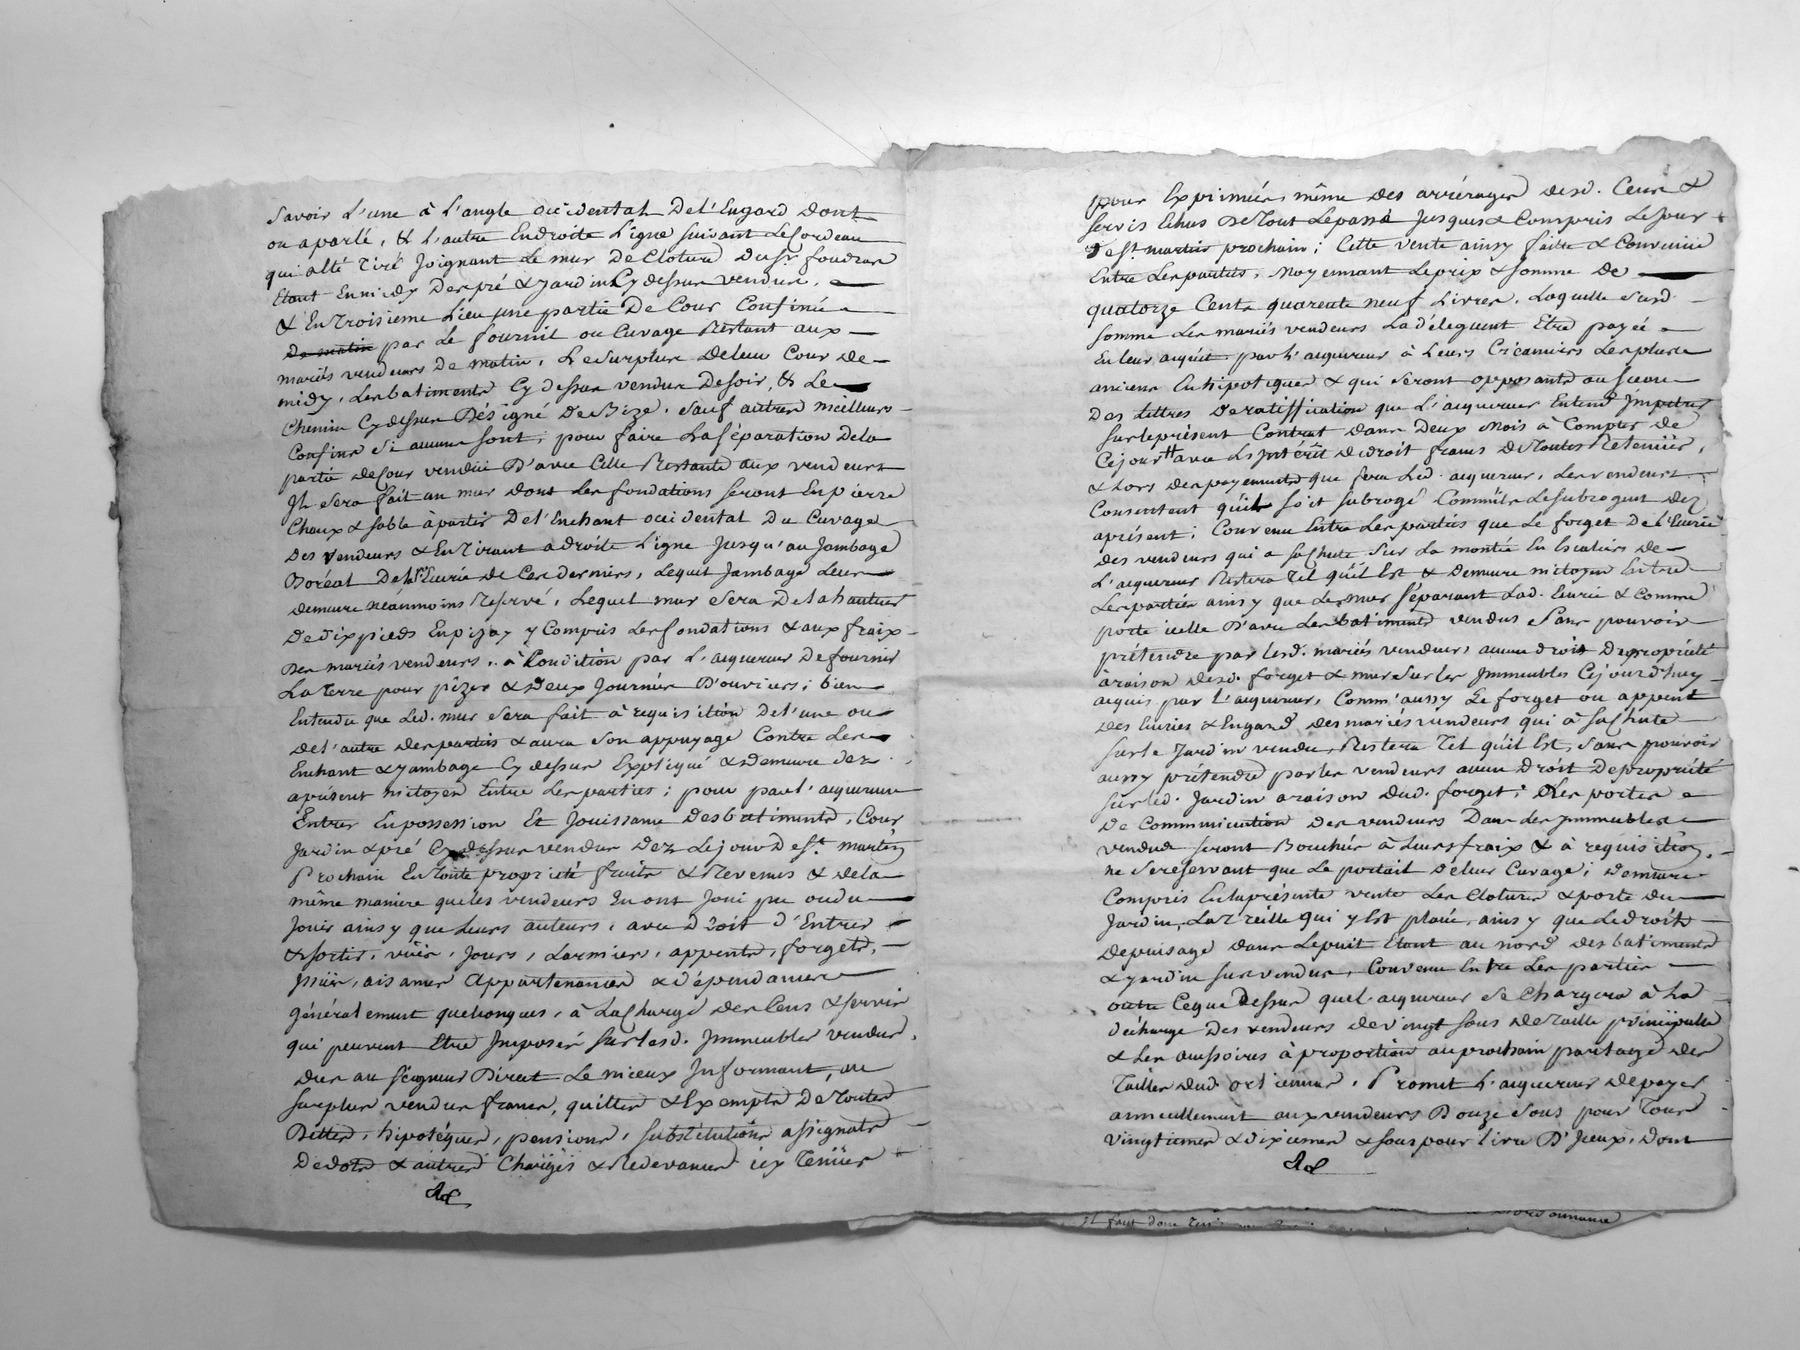 Savoir L'une à L'angle occidental De l'Engard Dont
on a parlé, & L'autre En droite Ligne suivant Le Cordeau
qui a été Tiré Joignant Le mur De Cloture Du Sr. foudras
Etant En midy Des pré & jardin Cy dessus vendus.
& En Troisieme Lieu une partie De Cour Confinée
par Le fournil ou Cuvage Restant aux
mariés vendeurs De matin, Le surplus De leur Cour de
midy, Les batiments Cy dessus vendus De soir, & Le
Chemin Cy dessus Désigné De Bize, Sauf autres meilleurs
Confins Si aucuns sont; pour faire La séparation De la
partie de Cour vendüe D'avec Celle Restante aux vendeurs
Il sera fait un mur Dont Les fondations seront En pierre
Chaux & sable à partir De l'Enchant occidental Du Cuvage
Des vendeurs & En Tirant a droite Ligne Jusqu'au Jambage
Boréal De L'Ecurie de Ces derniers, Lequel Jambage Leur
demeure néanmoins Reservé, Lequel mur sera De la hauteur
De dix pieds En pizay y Compris Les fondations & aux fraix
Des mariés vendeurs, à Condition par L'aquereur De fournir
La Terre pour pizer & Deux Journées D'ouvriers; bien
Entendu que Led. mur sera fait à requisition De l'une ou
De l'autre des parties & aura son appuyage Contre Les
Enchant & jambage Cy dessus Expliqué & Demeure dez
aprésent mitoyen Entre Les parties; pour par l'aquereur
Entrer En possession Et Jouissance Des batiments, Cour
Jardin & pré Cy dessus vendus Dez Le jour De St. martin
Prochain En Toute propriété fruits & Revenus & de la
même maniere que les vendeurs En ont Joui pu ou du
Jouir ainsy que Leurs auteurs, avec Droit d'Entrer
& sortir, vües, Jours, Larmiers, appents, forgets,
Issües, aisances Appartenances & dépendances
généralement quelconques, à La Charge des Cens & servis
qui peuvent Etre Imposés sur lesd. Immeubles vendus,
dus au seigneur Direct Le mieux Informant, au
surplus vendus francs, quittes & Exempts De Toutes
Dettes, hipotéques, pensions, substitutions assignats
De dots & autres Charges & Redevances icy Tenües
pour Exprimées, même des arrérages desd. Cens &
servis Echus De Tout Le passé Jusques & Compris Le Jour
De St. martin prochain; Cette vente ainsy faite & Convenüe
Entre Les parties, Moyennant Le prix & somme De
quatorze Cents quarente neuf Livres, Laquelle susd.
somme Les mariés vendeurs La déleguent Etre payée
En leur aquit par L'aquereur à Leurs Créanciers Les plus
anciens En hipotéques & qui seront opposants au sceau
Des Lettres De ratiffication que L'aquereur Entend Impetrer
sur le présent Contrat dans Deux Mois à Compter de
Cejourd'huy avec Les Intérêt de droit francs de Toutes Retenües,
& Lors des payements que fera Led. aquereur, Les vendeurs
Consentent qu'il soit subrogé Comme ils Le subrogent Dez
aprésent; Convenu Entre Les parties que Le forget De l'Ecurie
Des vendeurs qui a sa Chute sur La montée En Escaliers de
L'aquereur Restera Tel qu'il Est & demeure mitoyen Entre
Les parties ainsy que Le mur séparant Lad. Ecurie & Comme
porte icelle D'avec Les batiments vendus Sans pouvoir
prétendre par Lesd. mariés vendeurs aucun droit De propriété
à raison Desd. forget & mur sur Les Immeubles Cejourd'huy
aquis par L'aquereur, Comm'aussy Le forget ou appent
des Ecuries & Engard des mariés vendeurs qui à sa Chute
sur Le Jardin vendu, Restera Tel qu'il Est, sans pouvoir
aussy prétendre par les vendeurs aucun Droit De propriété
sur led. Jardin a raison Dud. forget; Les portes
De Communication Des vendeurs Dans Les Immeubles
vendus seront Bouchées à Leurs fraix & à requisition,
ne se reservant que Le portail De leur Cuvage; demeure
Compris En la présente vente Les Clotures & porte du
Jardin, La Treille qui y Est placée, ainsy que Le droit
De puisage dans Le puit Etant au nord des batiments
& jardin sus vendus, Convenu Entre Les parties
outre Ceque Dessus que L'aquereur se Chargera à La
décharge Des vendeurs de vingt sous De Taille principalle
& Les accessoires à proportion au prochain partage des
Tailles dud. , Promet L'aquereur De payer
annuellement aux vendeurs Douze sous pour Tous
vingtiemes & dixiemes & sous pour Livre D'Iceux, Dont
il faut donc